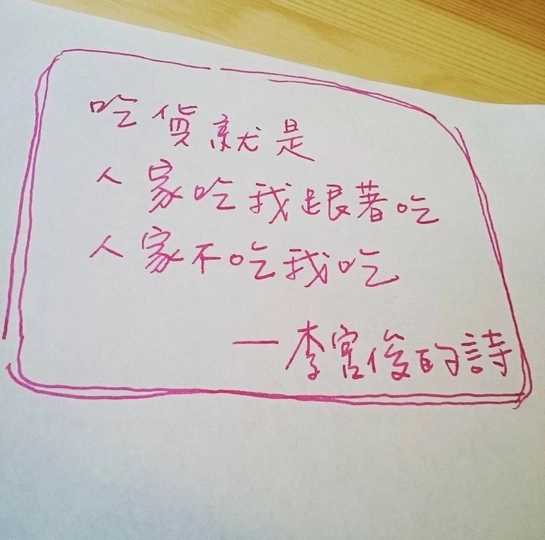 吃貨就是
人家吃我跟著吃
人家不吃我吃
一李宮俊的詩